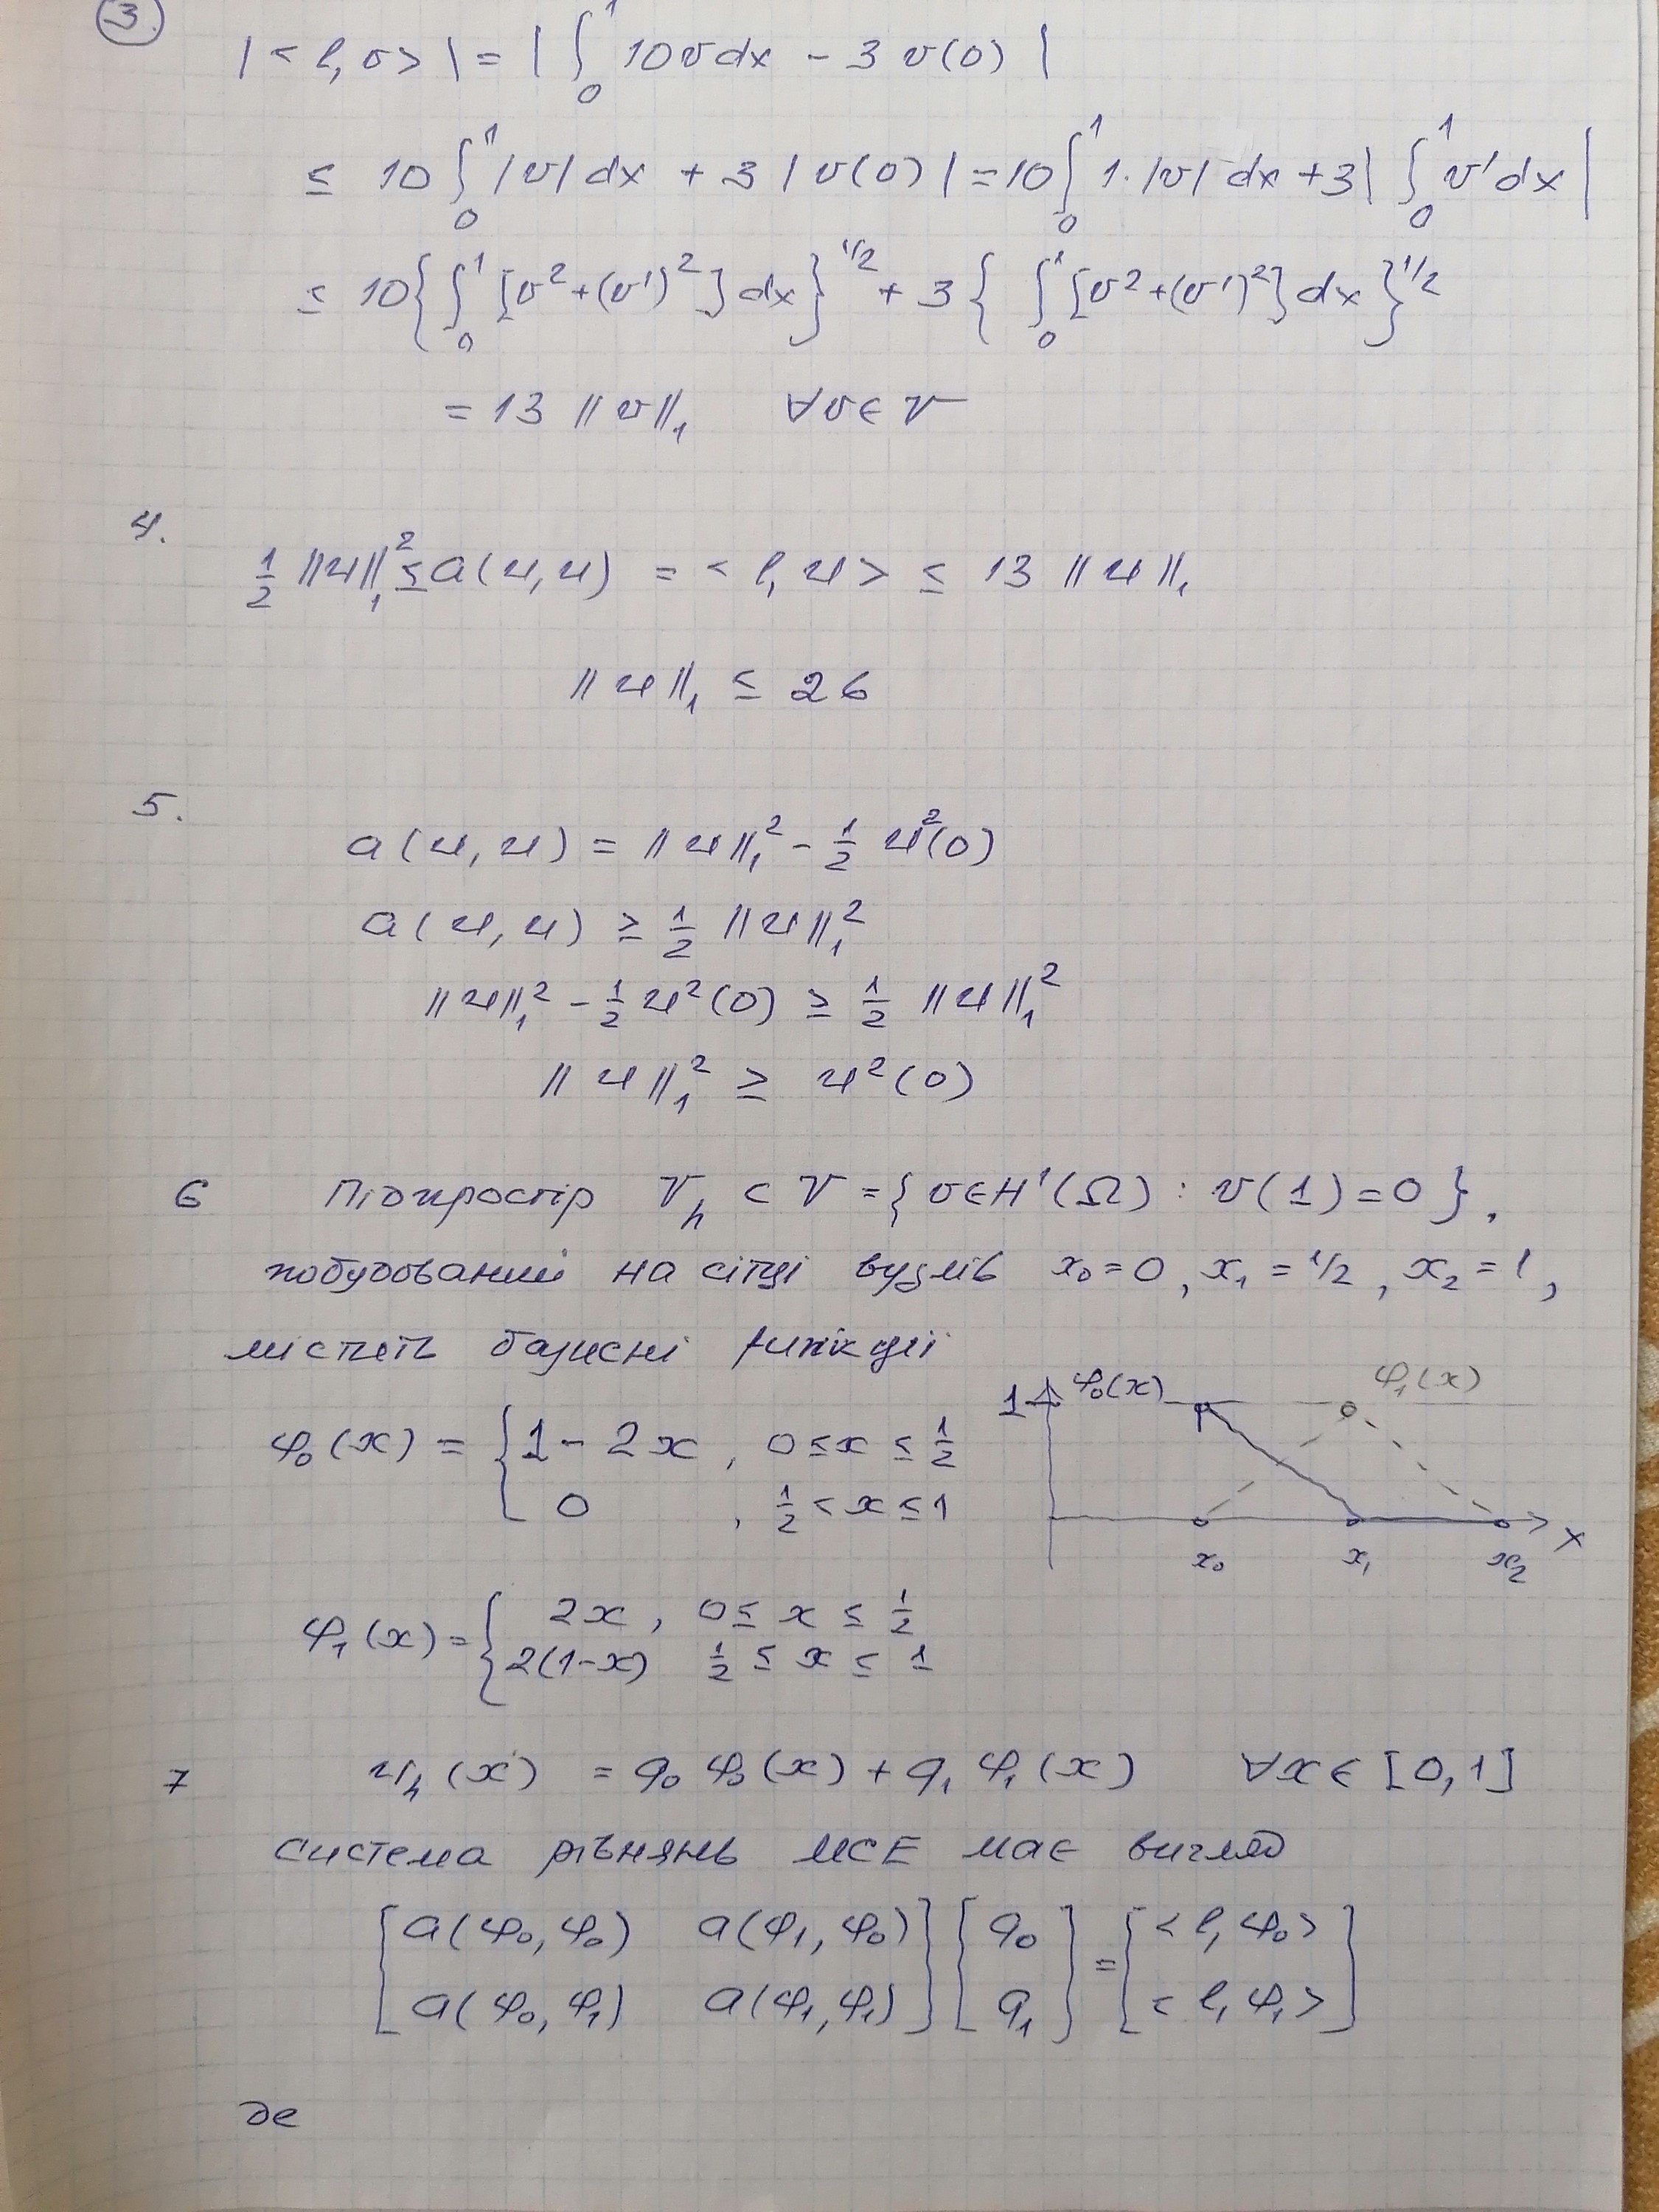 3
|<l,v>| = | ∫₀¹ 10v dx - 3 v(0) |
≤ 10 ∫₀¹ |v| dx + 3 |v(0)| = 10 ∫₀¹ 1·|v| dx + 3 | ∫₀¹ v' dx |
≤ 10 { ∫₀¹ [v² + (v')²] dx }^1/2 + 3 { ∫₀¹ [v² + (v')²] dx }^1/2
= 13 ||v||₁ ∀v∈V
4.
1/2 ||u||₁² ≤ a(u,u) = <l,u> ≤ 13 ||u||₁
||u||₁ ≤ 26
5.
a(u,u) = ||u||₁² - 1/2 u²(0)
a(u,u) ≥ 1/2 ||u||₁²
||u||₁² - 1/2 u²(0) ≥ 1/2 ||u||₁²
||u||₁² ≥ u²(0)
6 Підпростір V_h ⊂ V = { v∈H¹(Ω) : v(1) = 0 },
побудований на сітці вузлів x₀ = 0, x₁ = 1/2, x₂ = 1,
містить базисні функції
φ₀(x) = { 1 - 2x, 0 ≤ x ≤ 1/2
0, 1/2 < x ≤ 1
1 φ₀(x) φ₁(x)
x₀ x₁ x₂ x
φ₁(x) = { 2x, 0 ≤ x ≤ 1/2
2(1-x) 1/2 ≤ x ≤ 1
7 u_h(x) = q₀ φ₀(x) + q₁ φ₁(x) ∀x∈[0,1]
Система рівнянь МСЕ має вигляд
[ a(φ₀,φ₀) a(φ₁,φ₀) ] [ q₀ ] = [ <l,φ₀> ]
[ a(φ₀,φ₁) a(φ₁,φ₁) ] [ q₁ ] [ <l,φ₁> ]
де